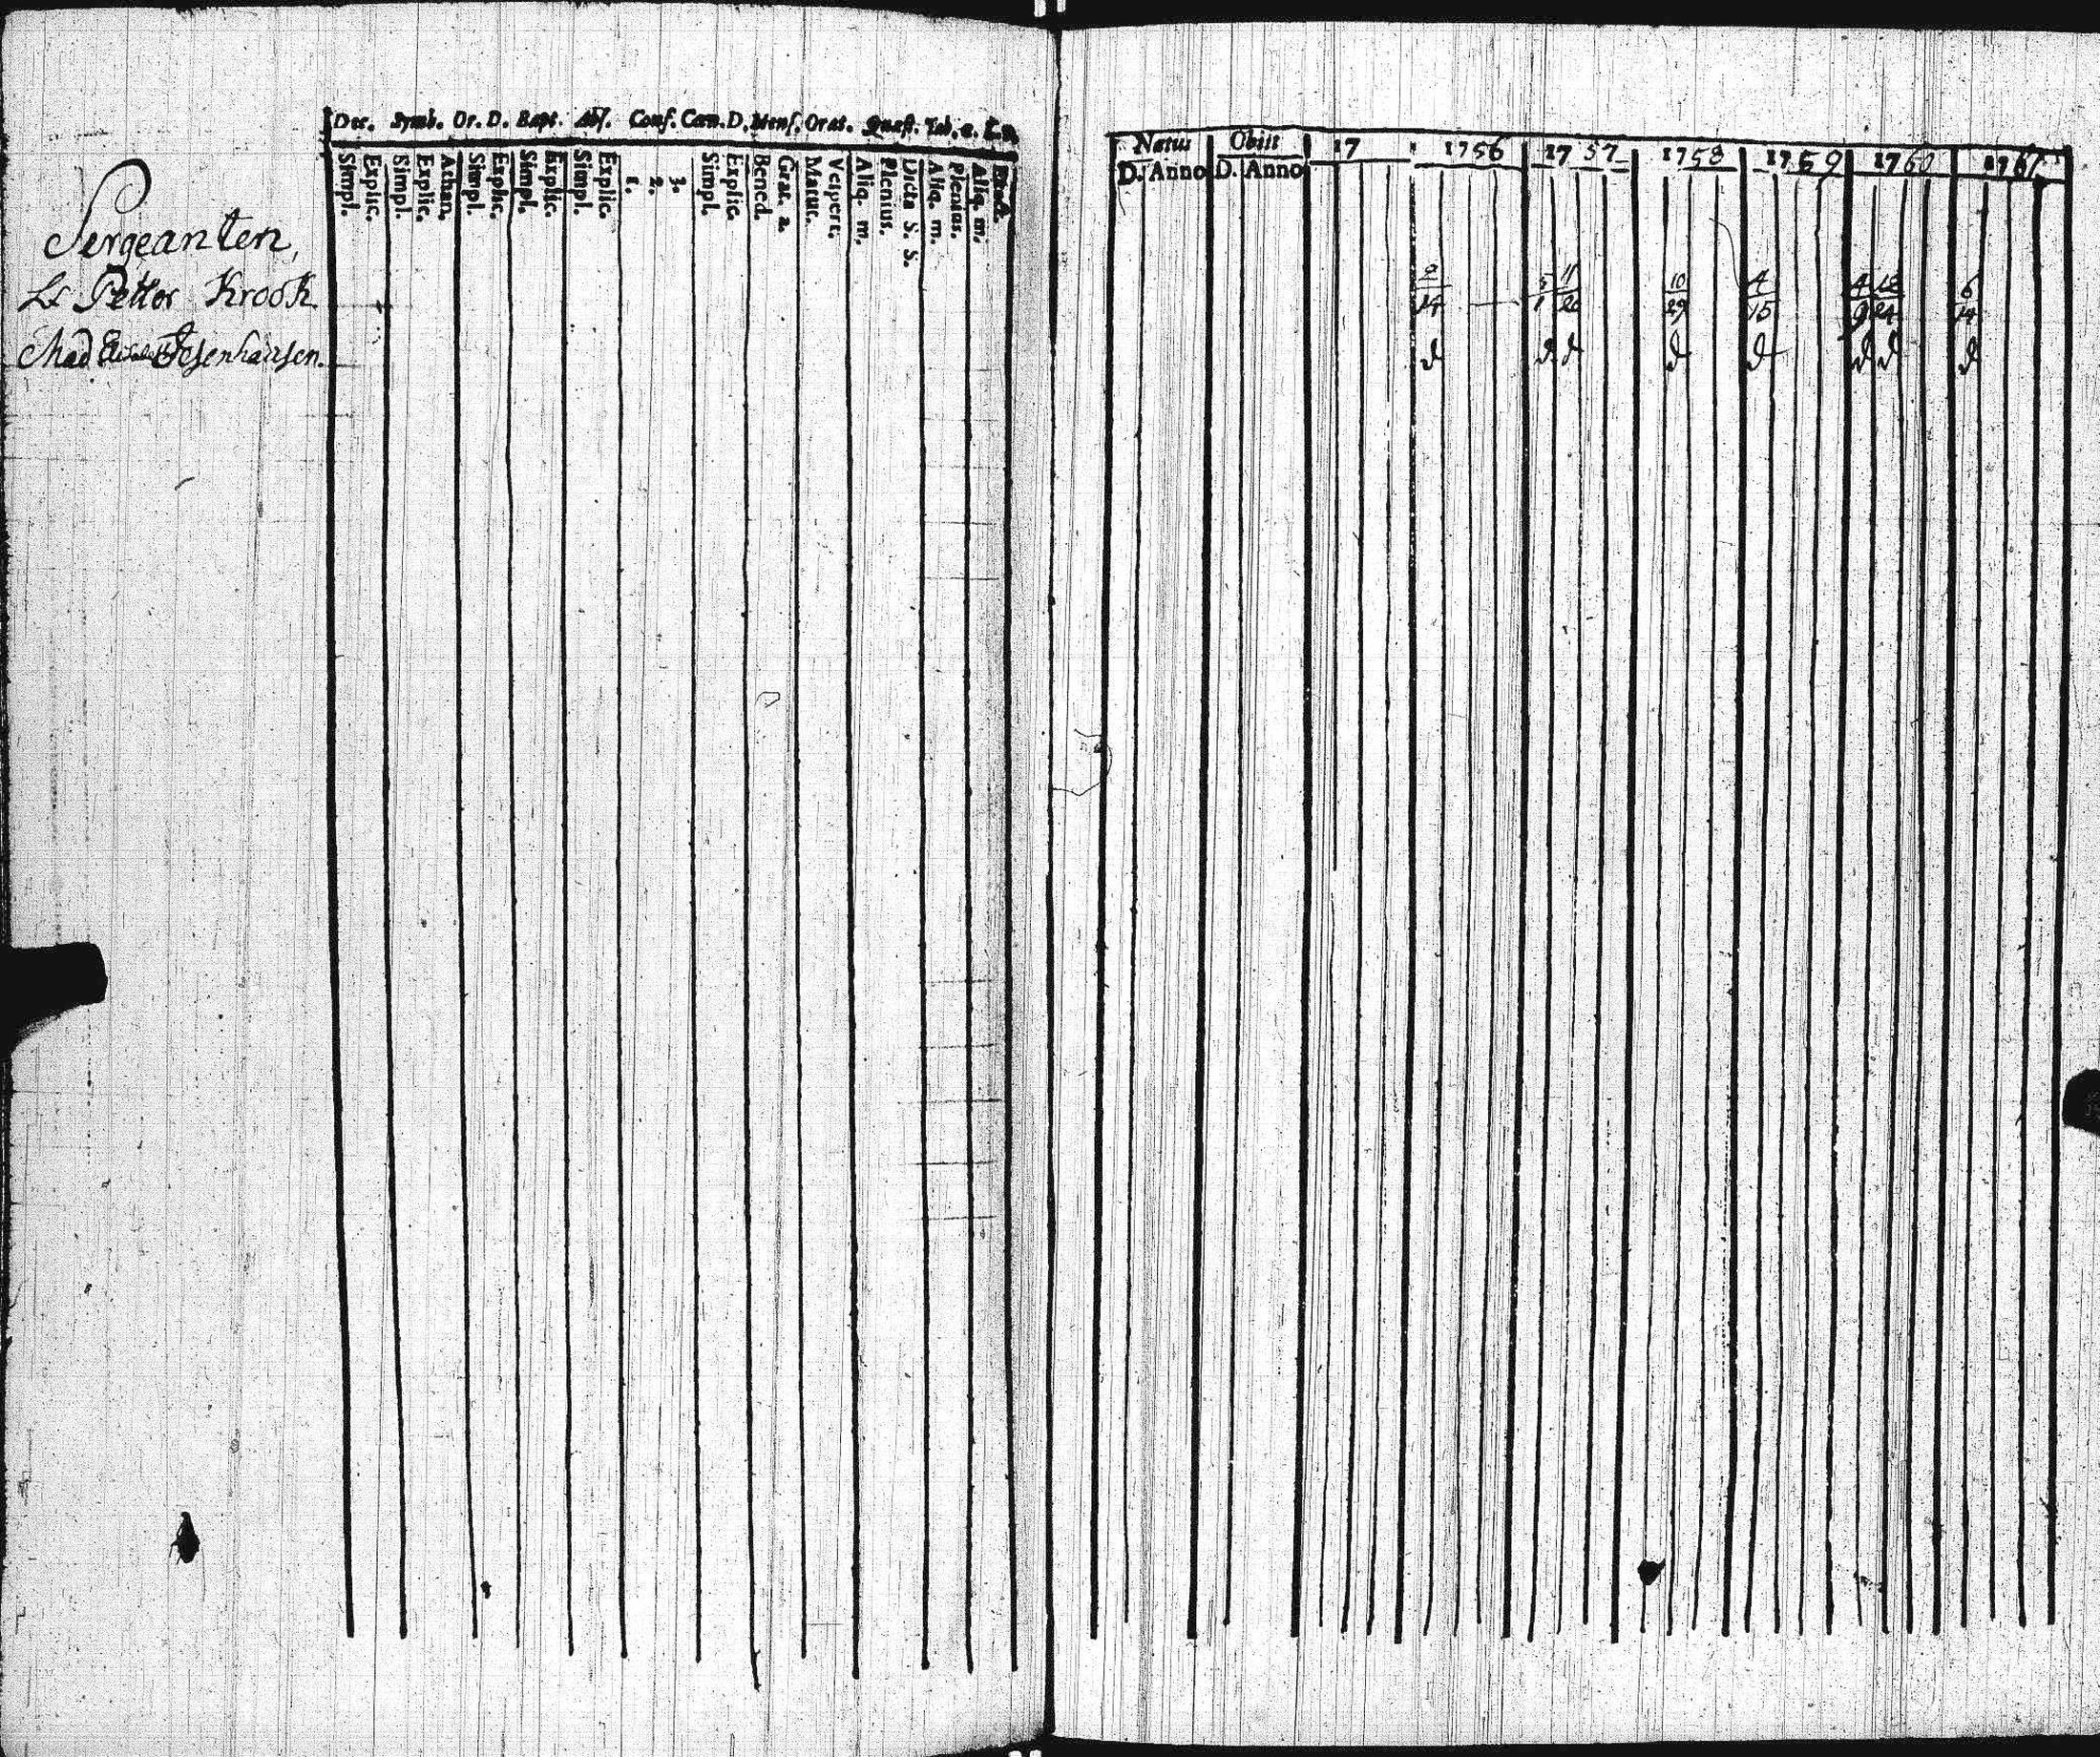 Dec. Symb. Or. D. Bapt. Abs. Conf. Cœn. D. Mens. Orat. Quæst. Tab. œ.
Simpl. Explic. Simpl. Explic. Athan. Simpl. Explic. Simpl. Explic. Simpl. Explic. 1. 2. 3. Simpl. Explic. Bened. Grat. a. Matut. Vespert. Aliq. m. Plenius. Dicta S. S. Aliq. m. Plenius. Aliq. m. Exact.
Sergeanten,
Petter Krook
Mad
Natus Obiit 17 1756 1757 1758 1759 1760 1761
D. Anno D. Anno
2/14 5/1 11/20 10/29 4/15 4/9 12/24 6/14
d d d d d d d d